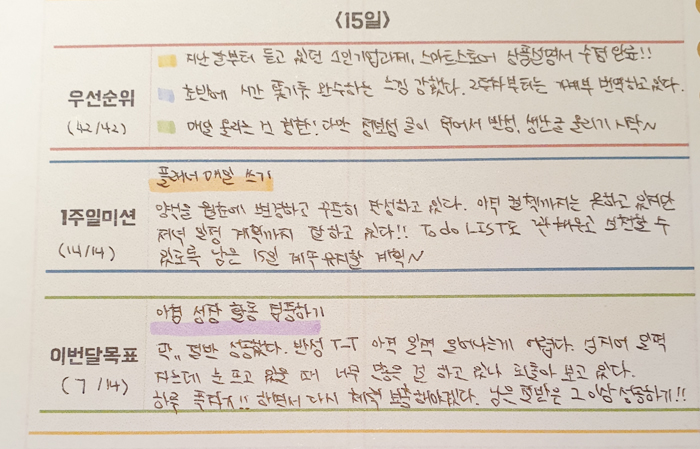 〈15일〉
지난 달부터 듣고 있던 1인기업과제, 스마트스토어 상품설명서 수정 완료!!
우선순위
초반에 시간 쫓기듯 완수하는 느낌 강했다. 2주차부터는 차례부 번역하고 있다.
(42/42)
매일 올리는 건 힘함! 다만 정보성 글이 뛰어서 반성, 생난글 올리기 시작~
플래너 매일 쓰기
양식을 월초에 변경하고 꾸준히 작성하고 있다. 아직 컬체까지는 못하고 있지만
1주일미션
저녁 일정 계획까지 잘하고 있다!! To do LIST도 관 채우고 보전할 수
(14/14)
있도록 남은 15일 계속 유지할 계획~
아침 성장 활동 집중하기
딱,, 절반 성공했다. 반성 T-T 아직 일찍 일어나는게 어렵다. 심지어 일찍
이번달목표
자는데 눈 뜨고 있을 때 너무 많은 걸 하고 있나 되돌아 보고 있다.
(7/14)
하루 푹자자!! 하면서 다시 체력 보충해야겠다. 남은 절반은 그 이상 성공하기!!